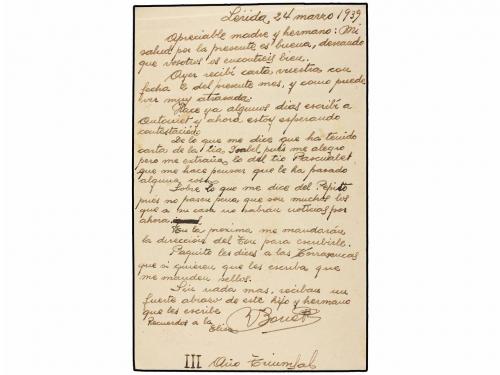 Lérida, 24 marzo 1939
Apreciable madre y hermano: Mi
salud por la presente es buena, deseando
que vosotros os encontréis bien.
Ayer recibí carta vuestra con
fecha 6 del presente mes, y como puede
ver muy atrasada.
Hace ya algunos dias escribí a
Antoniet y ahora estoy esperando
contestación.
De lo que me dice que ha tenido
carta de la tia Isabel pues me alegro
pero me extraña lo del tio Pascualet
que me hace pensar que le ha pasado
alguna cosa.
Sobre lo que me dice del Pepito
pues no pasen pena que son muchos los
que a su casa no habran noticias por
ahora.
En la proxima me mandarán
la dirección del para escribirle.
Paquito les dices a las
que si quieren que les escriba que
me manden sellos.
Sin nada mas, reciban un
fuerte abrazo de este hijo y hermano
que les escribe
Recuerdos a la Elisa
III Año Triunfal